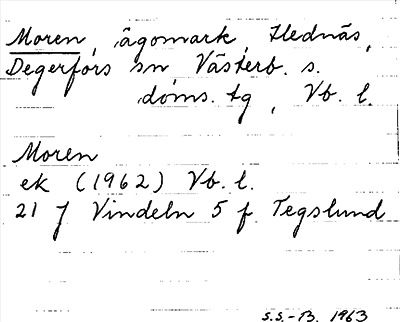 Moren, ägomark, Hednäs,
Degerfors sn, Västerb. s.
doms. tg, Vb. l.
Moren
ek (1962) Vb. l.
21 J Vindeln 5 f Tegslund
S.S.-B. 1963